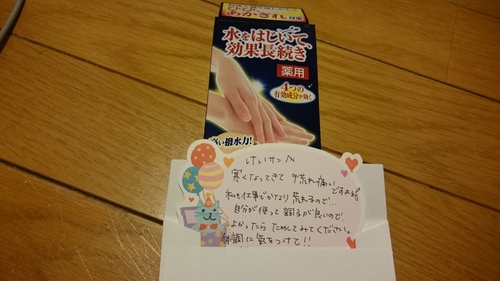 あかぎれ
水をはじいて、
効果長続き
薬用
4つの
有効成分が効く
高い撥水力!
けいサンへ
寒くなってきて 手荒れ痛い ですよね
私も仕事でかなり 荒れるので…
自分が使って 調子が良いので、
よかったら ためしてみてください。
体調に気をつけて!!